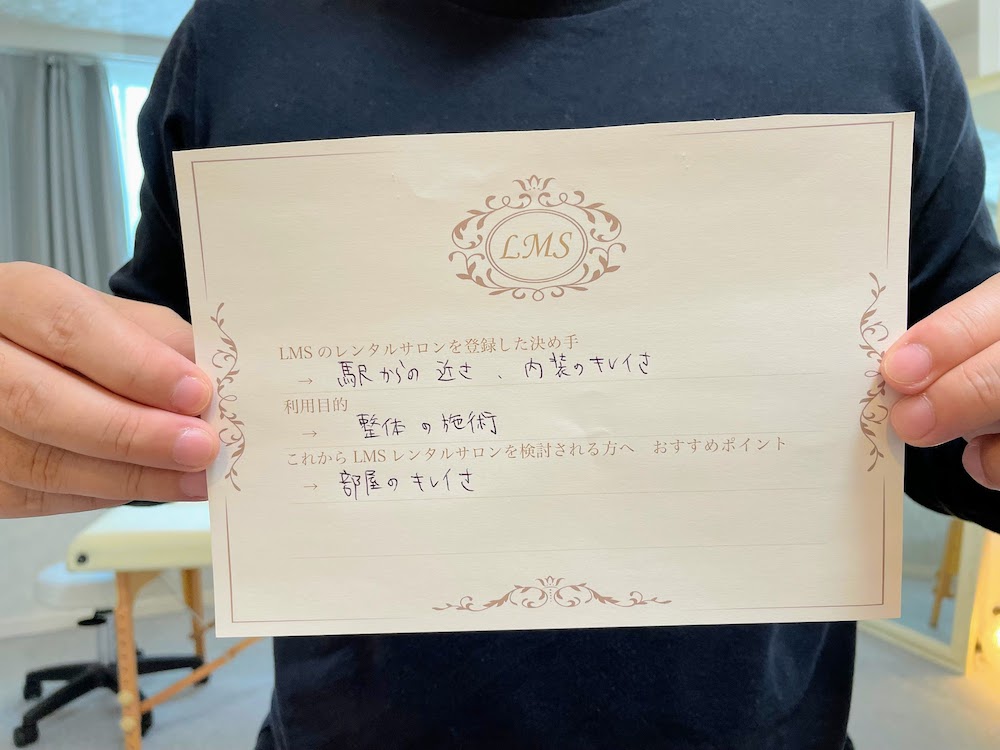 LMS
LMSのレンタルサロンを登録した決め手
→ 駅からの近さ、内装のキレイさ
利用目的
→ 整体の施術
これからLMSレンタルサロンを検討される方へ おすすめポイント
→ 部屋のキレイさ